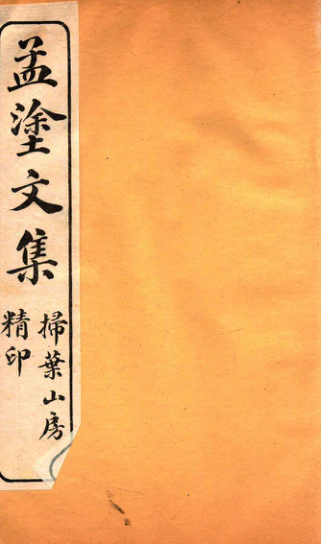 孟塗文集
掃葉山房
精印